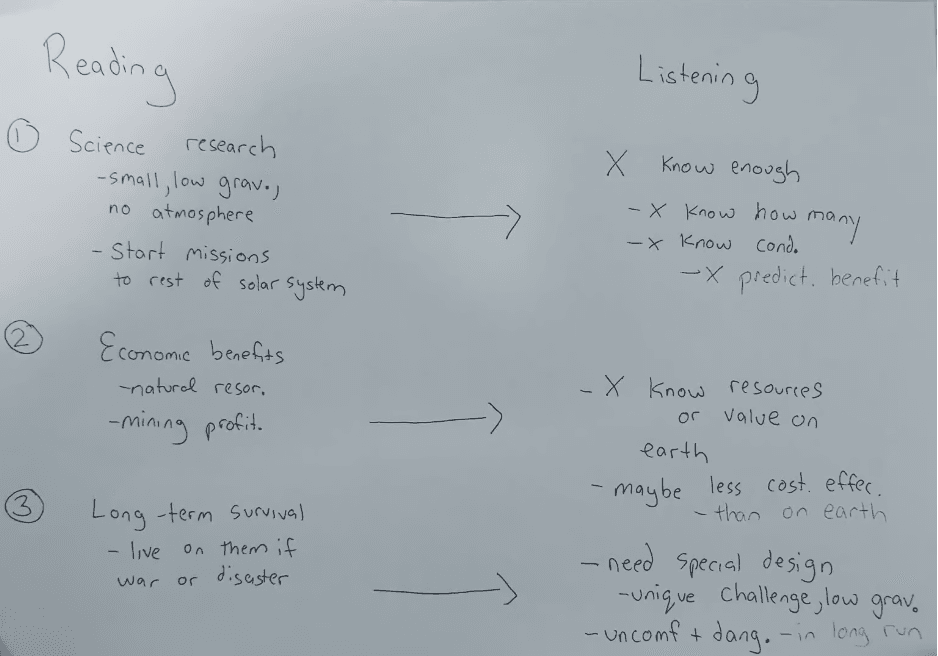 Reading
① Science research
-small, low grav.,
no atmosphere
- Start missions
to rest of solar system
② Economic benefits
-natural resor.
-mining profit.
③ Long-term survival
- live on them if
war or disaster
Listening
X Know enough
- X Know how many
- X Know cond.
- X predict. benefit
- X Know resources
or value on
earth
- maybe less cost. effec.
- than on earth
- need special design
-unique challenge, low grav.
- uncomf + dang. - in long run